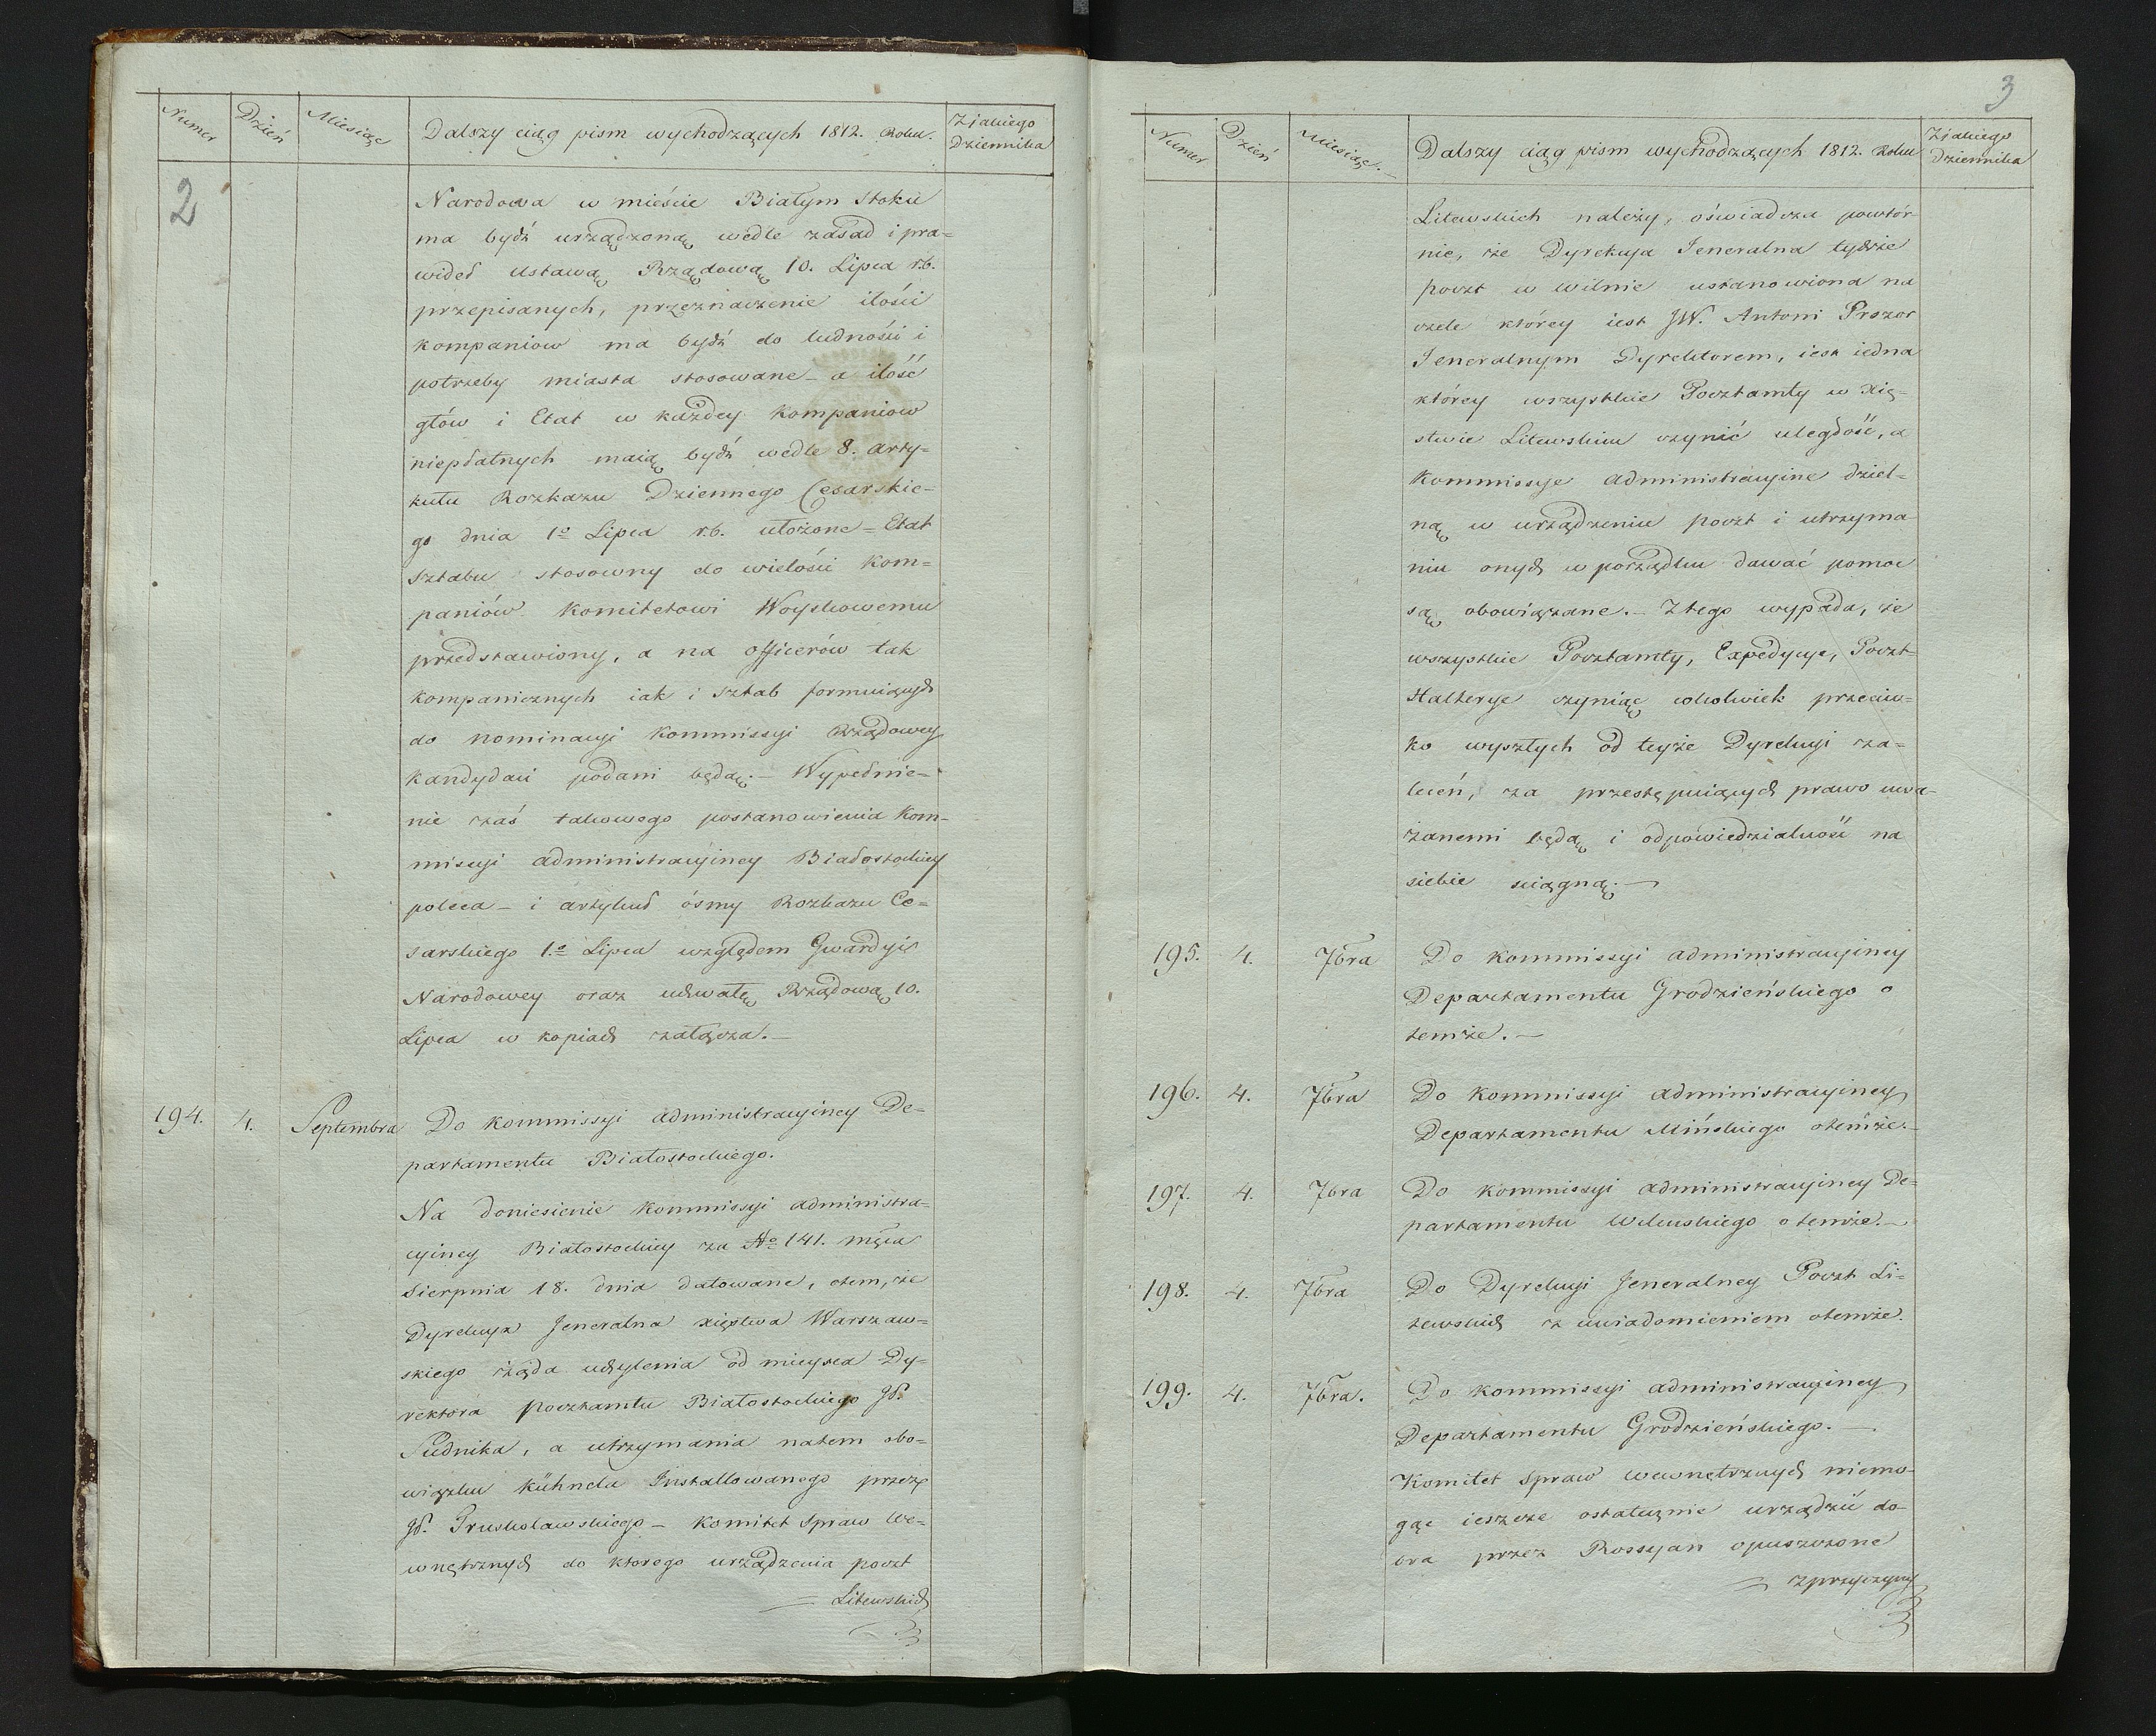 Numer Dzień Miesiąc Dalszy ciąg pism wychodzących 1812. Roku. Zjakiego
Dziennika
2
Narodowa w mieście Białym Stoku
ma bydź urządzoną wedle zasad i pra=
wideł Ustawą Rządową 10. Lipca r.b.
przepisanych, przeznaczenie ilości
kompaniow ma bydź do ludności i
potrzeby miasta stosowane – a ilość
głów i Etat w każdey kompaniow
niepłatnych maią bydź wedle 8. arty=
kułu Rozkazu Dziennego Cesarskie=
go dnia 1º Lipca r.b. ułożone – Etat
sztabu stosowny do wielości kom=
paniów Komitetowi Woyskowemu
przedstawiony, a na officerów tak
kompanicznych iak i sztab formuiących
do nominacyi Kommissyi Rządowey
kandydaci podani będą. – Wypełnie=
nie zaś takowego postanowienia Kom=
missyi administracyiney Białostockiey
poleca – i artykuł ósmy Rozkazu Ce=
sarskiego 1.º Lipca względem Gwardyi
Narodowey oraz uchwałę Rządową 10.
Lipca w kopiach załącza. –
194. 4. Septembra Do kommissyi administracyiney De=
partamentu Białostockiego.
Na doniesienie kommissyi administra=
cyiney Białostockiey za Nº 141. mca
Sierpnia 18. dnia datowane, otem, że
Dyrekcya Jeneralna xięstwa Warszaw=
skiego żąda uchylenia od mieysca Dy=
rektora pocztamtu Białostockiego JP.
Pudnika, a utrzymania natem obo=
wiązku Kühnela Installowanego przez
JP. Pruskolawskiego – Komitet Spraw We=
wnętrznych do ktorego urządzenia poczt
Litewskich
3
Numer Dzień Miesiąc. Dalszy ciąg pism wychodzących 1812. Roku Zjakiego
Dziennika
Litewskich należy, oświadcza powtór=
nie, że Dyrekcya Jeneralna tychże
poczt w Wilnie ustanowiona na
czele którey iest JW. Antoni Prozor
Jeneralnym Dyrektorem, iest iedna
którey wszystkie Pocztamty w Xię=
stwie Litewskim czynić uległość, a
Kommissye administracyine dziel=
ną w urządzeniu poczt i utrzyma
niu onych w porządku dawać pomoc
są obowiązane. – Ztego wypada, że
wszystkie Pocztamty, Expedycye, Poczt=
Halterye czyniąc cokolwiek przeciw=
ko wyszłych od teyże Dyrekcyi za=
leceń, za przestępuiących prawo uwa=
żanemi będą i odpowiedzialność na
siebie sciągną. –
195. 4. 7bra Do kommissyi administracyiney
Departamentu Grodzieńskiego o
temże. –
196. 4. 7bra Do kommissyi administracyiney
Departamentu Mińskiego otemże. –
197. 4. 7bra Do kommissyi administracyiney De=
partamentu Wilenskiego otemże. –
198. 4. 7bra Do Dyrekcyi Jeneralney Poczt Li=
tewskich z uwiadomieniem otemże.
199. 4. 7bra. Do kommissyi administracyiney
Departamentu Grodzieńskiego. –
Komitet Spraw wewnętrznych niemo=
gąc ieszcze ostatecznie urządzić do=
bra przez Rossyan opuszczone
zprzyczyny